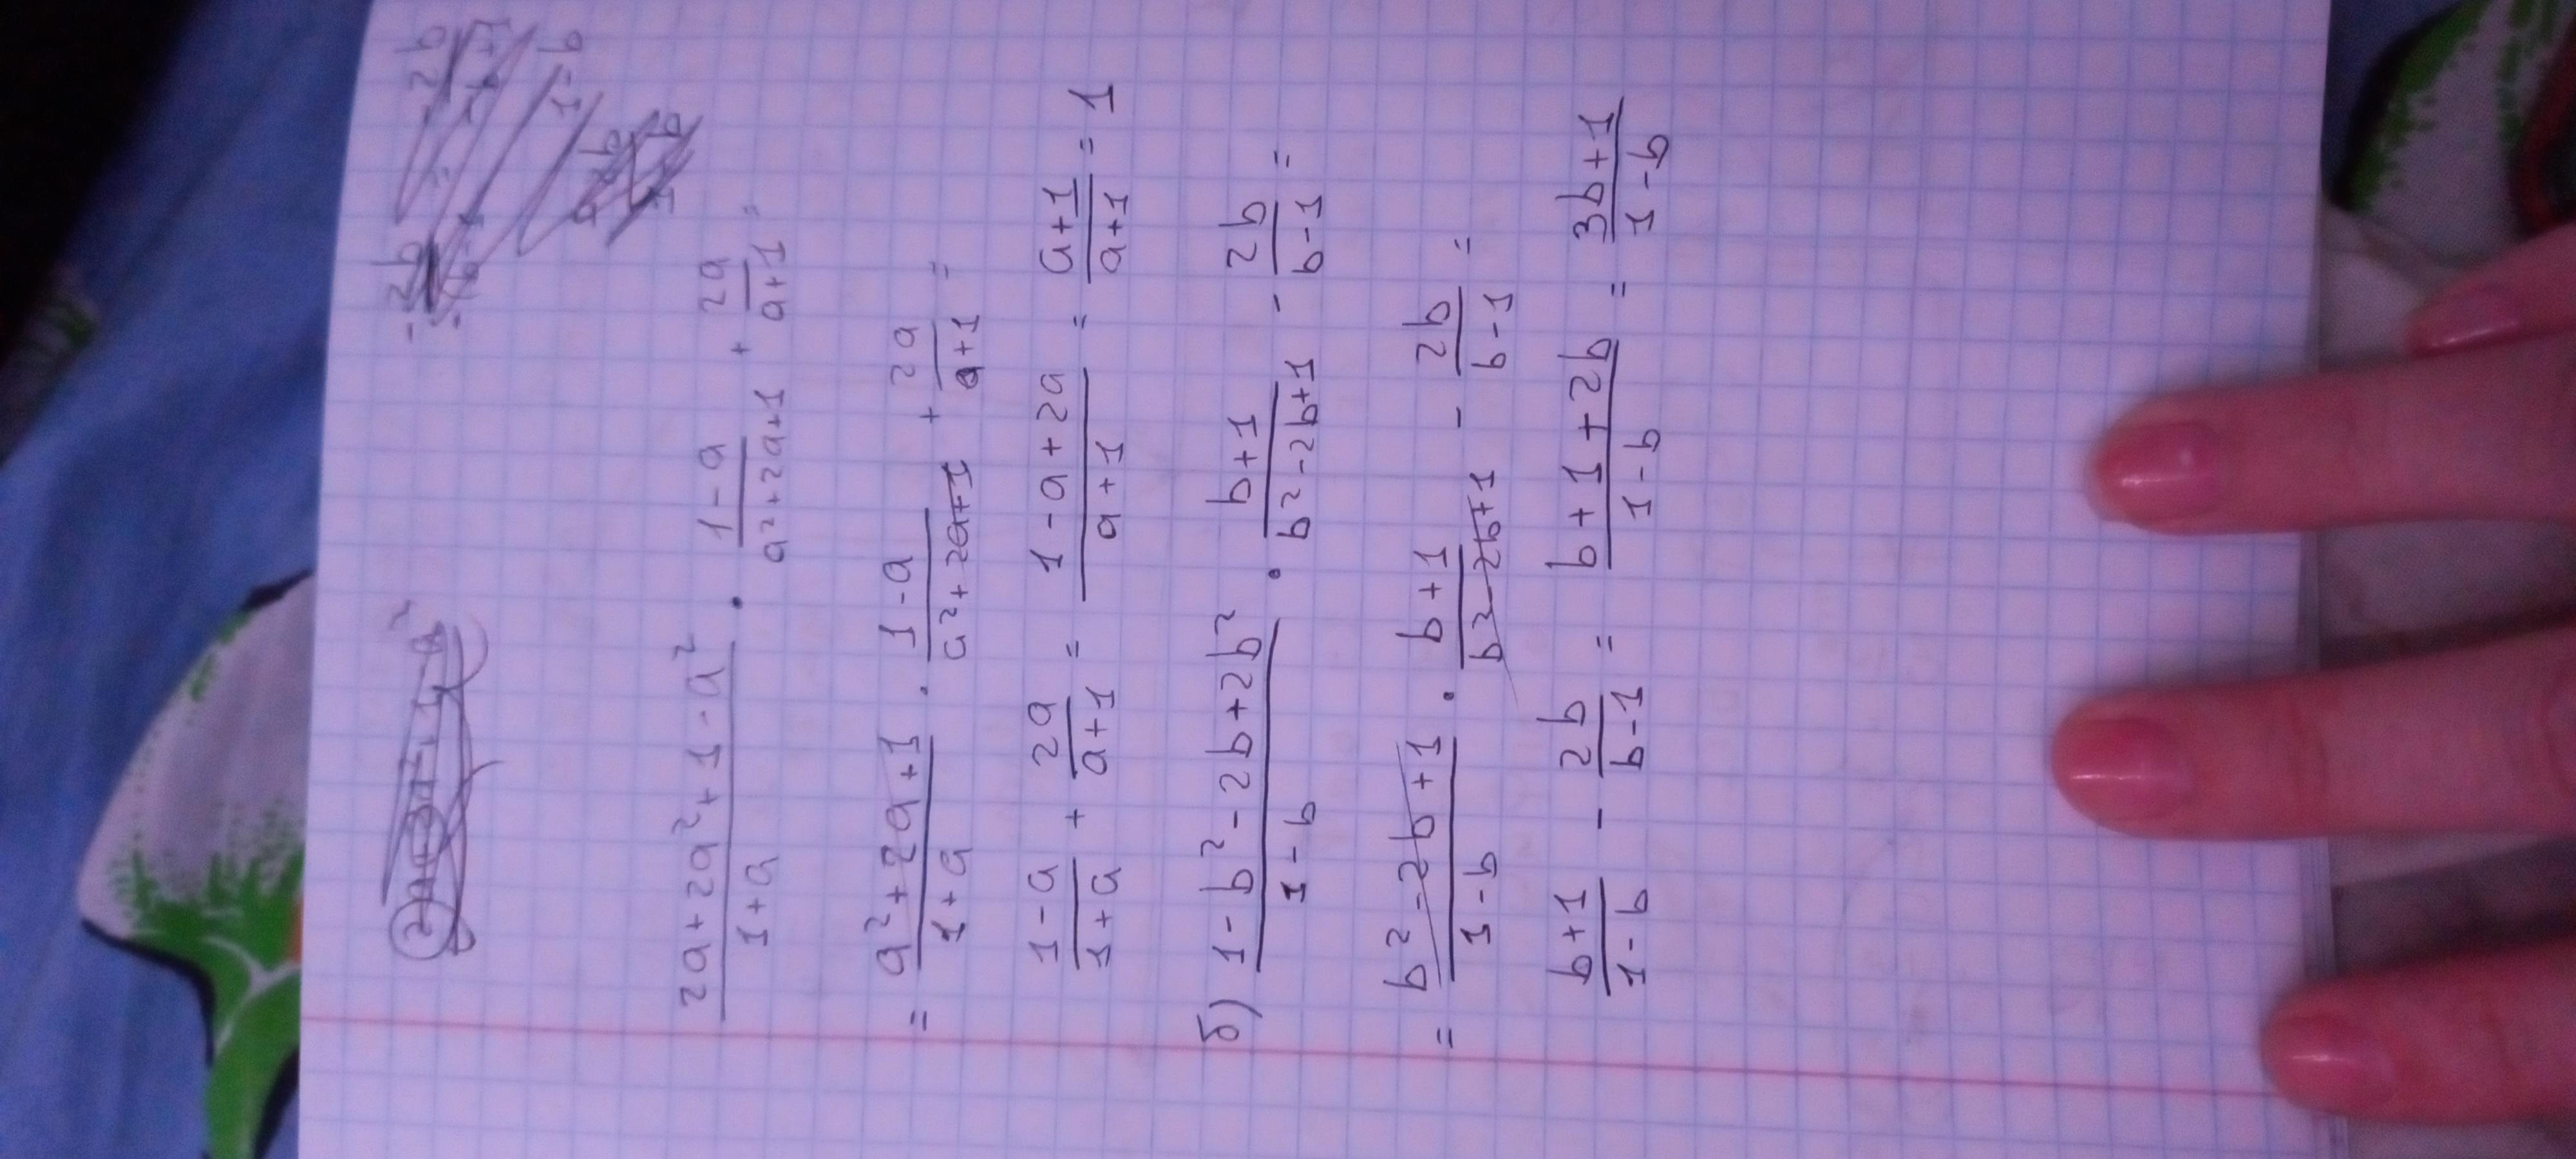 (2a+2a²+1-a²)/(1+a) · (1-a)/(a²+2a+1) + 2a/(a+1) =
= (a²+2a+1)/(1+a) · (1-a)/(a²+2a+1) + 2a/(a+1) =
(1-a)/(1+a) + 2a/(a+1) = (1-a+2a)/(a+1) = (a+1)/(a+1) = 1
б) (1-b²-2b+2b²)/(1-b) · (b+1)/(b²-2b+1) - 2b/(b-1) =
= (b²-2b+1)/(1-b) · (b+1)/(b²-2b+1) - 2b/(b-1) =
(b+1)/(1-b) - 2b/(b-1) = (b+1+2b)/(1-b) = (3b+1)/(1-b)